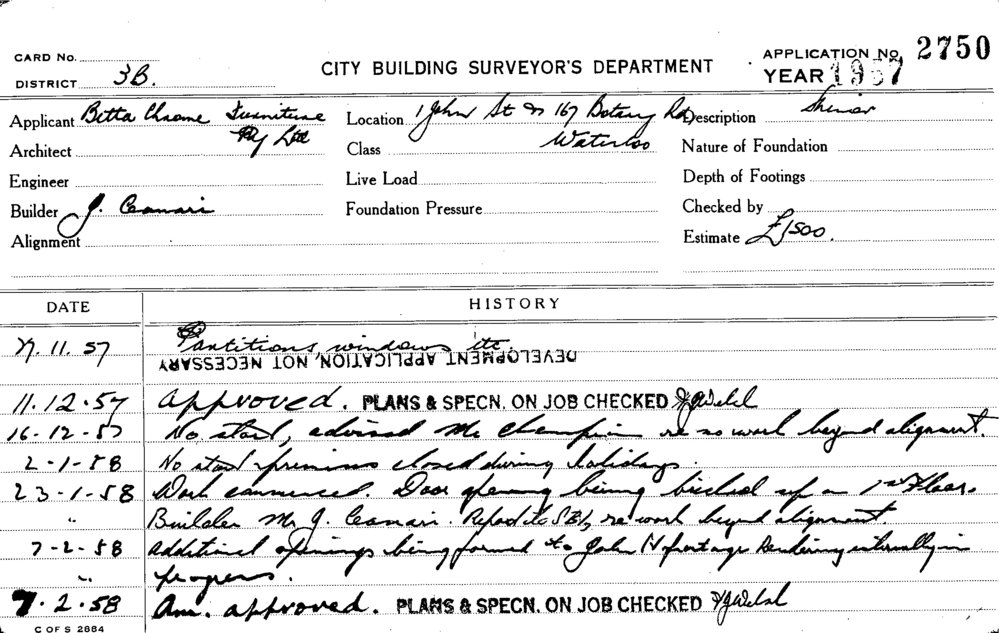 CARD No.
DISTRICT 3B.
CITY BUILDING SURVEYOR'S DEPARTMENT
APPLICATION No. 2750
YEAR 1957
Applicant Betta Chrome Furniture Pty Ltd
Location 1 John St & 167 Botany Rd Waterloo
Description
Architect
Class
Nature of Foundation
Engineer
Live Load
Depth of Footings
Builder J. Ceanari
Foundation Pressure
Checked by
Alignment
Estimate £1500.
DATE HISTORY
11. 57 Partitions, windows etc.
DEVELOPMENT APPLICATION, NOT NECESSARY
11.12.57 Approved. PLANS & SPECN. ON JOB CHECKED
16-12-57 No start, advised Mr Champion re no work beyond alignment.
2-1-58 No start premises closed during holidays.
23-1-58 Work commenced. Door opening being bricked up on 1st Floor.
" Builder Mr J. Ceanari. re work beyond alignment.
7-2-58 Additional openings being formed to John St frontage Rendering internally in
" progress.
7.2.58 Am. approved. PLANS & SPECN. ON JOB CHECKED
C OF S 2884